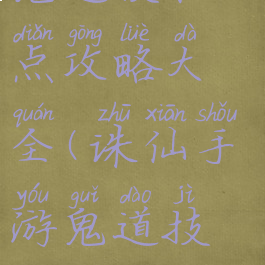 diǎn gōng lüè dà
点攻略大
quán zhū xiān shǒu
全(诛仙手
yóu guǐ dào jì
游鬼道技